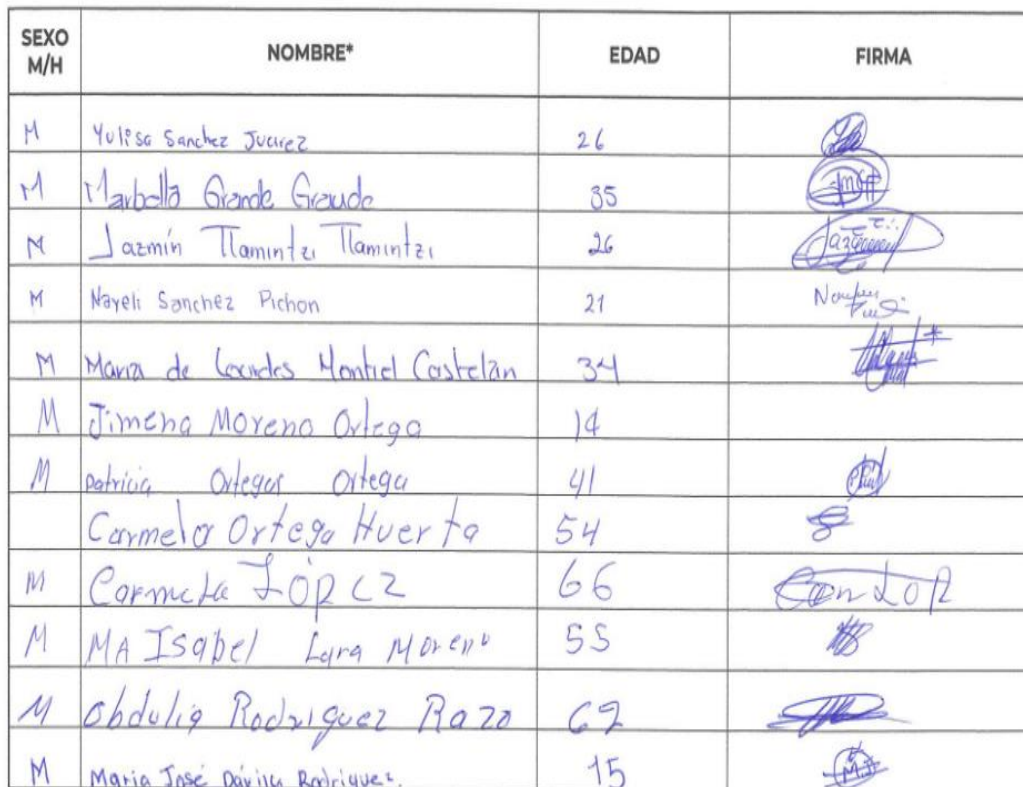 SEXO M/H NOMBRE* EDAD FIRMA
M Yulisa Sanchez Juarez 26
M Marbella Grande Grande 35
M Jazmín Tlamintzi Tlamintzi 26
M Nayeli Sanchez Pichon 21
M Maria de Lourdes Montiel Castelán 34
M Jimena Moreno Ortega 14
M Patricia Ortega Ortega 41
Carmela Ortega Huerta 54
M Carmela LÓPEZ 66 Com LOR
M MA Isabel Lara Moreno 55
M Obdulia Rodriguez Razo 69
M Maria José Dávila Rodriguez. 15 MJ